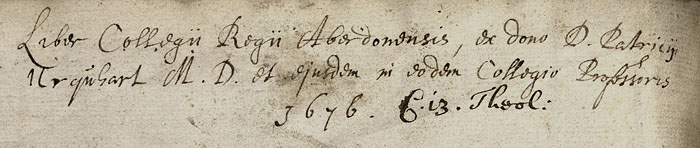 Liber Collegii Regii Aberdonensis, ex dono D. Patricij
Urquhart M. D. et ejusdem in eodem Collegio Professoris
1676. C. 13. Theol: